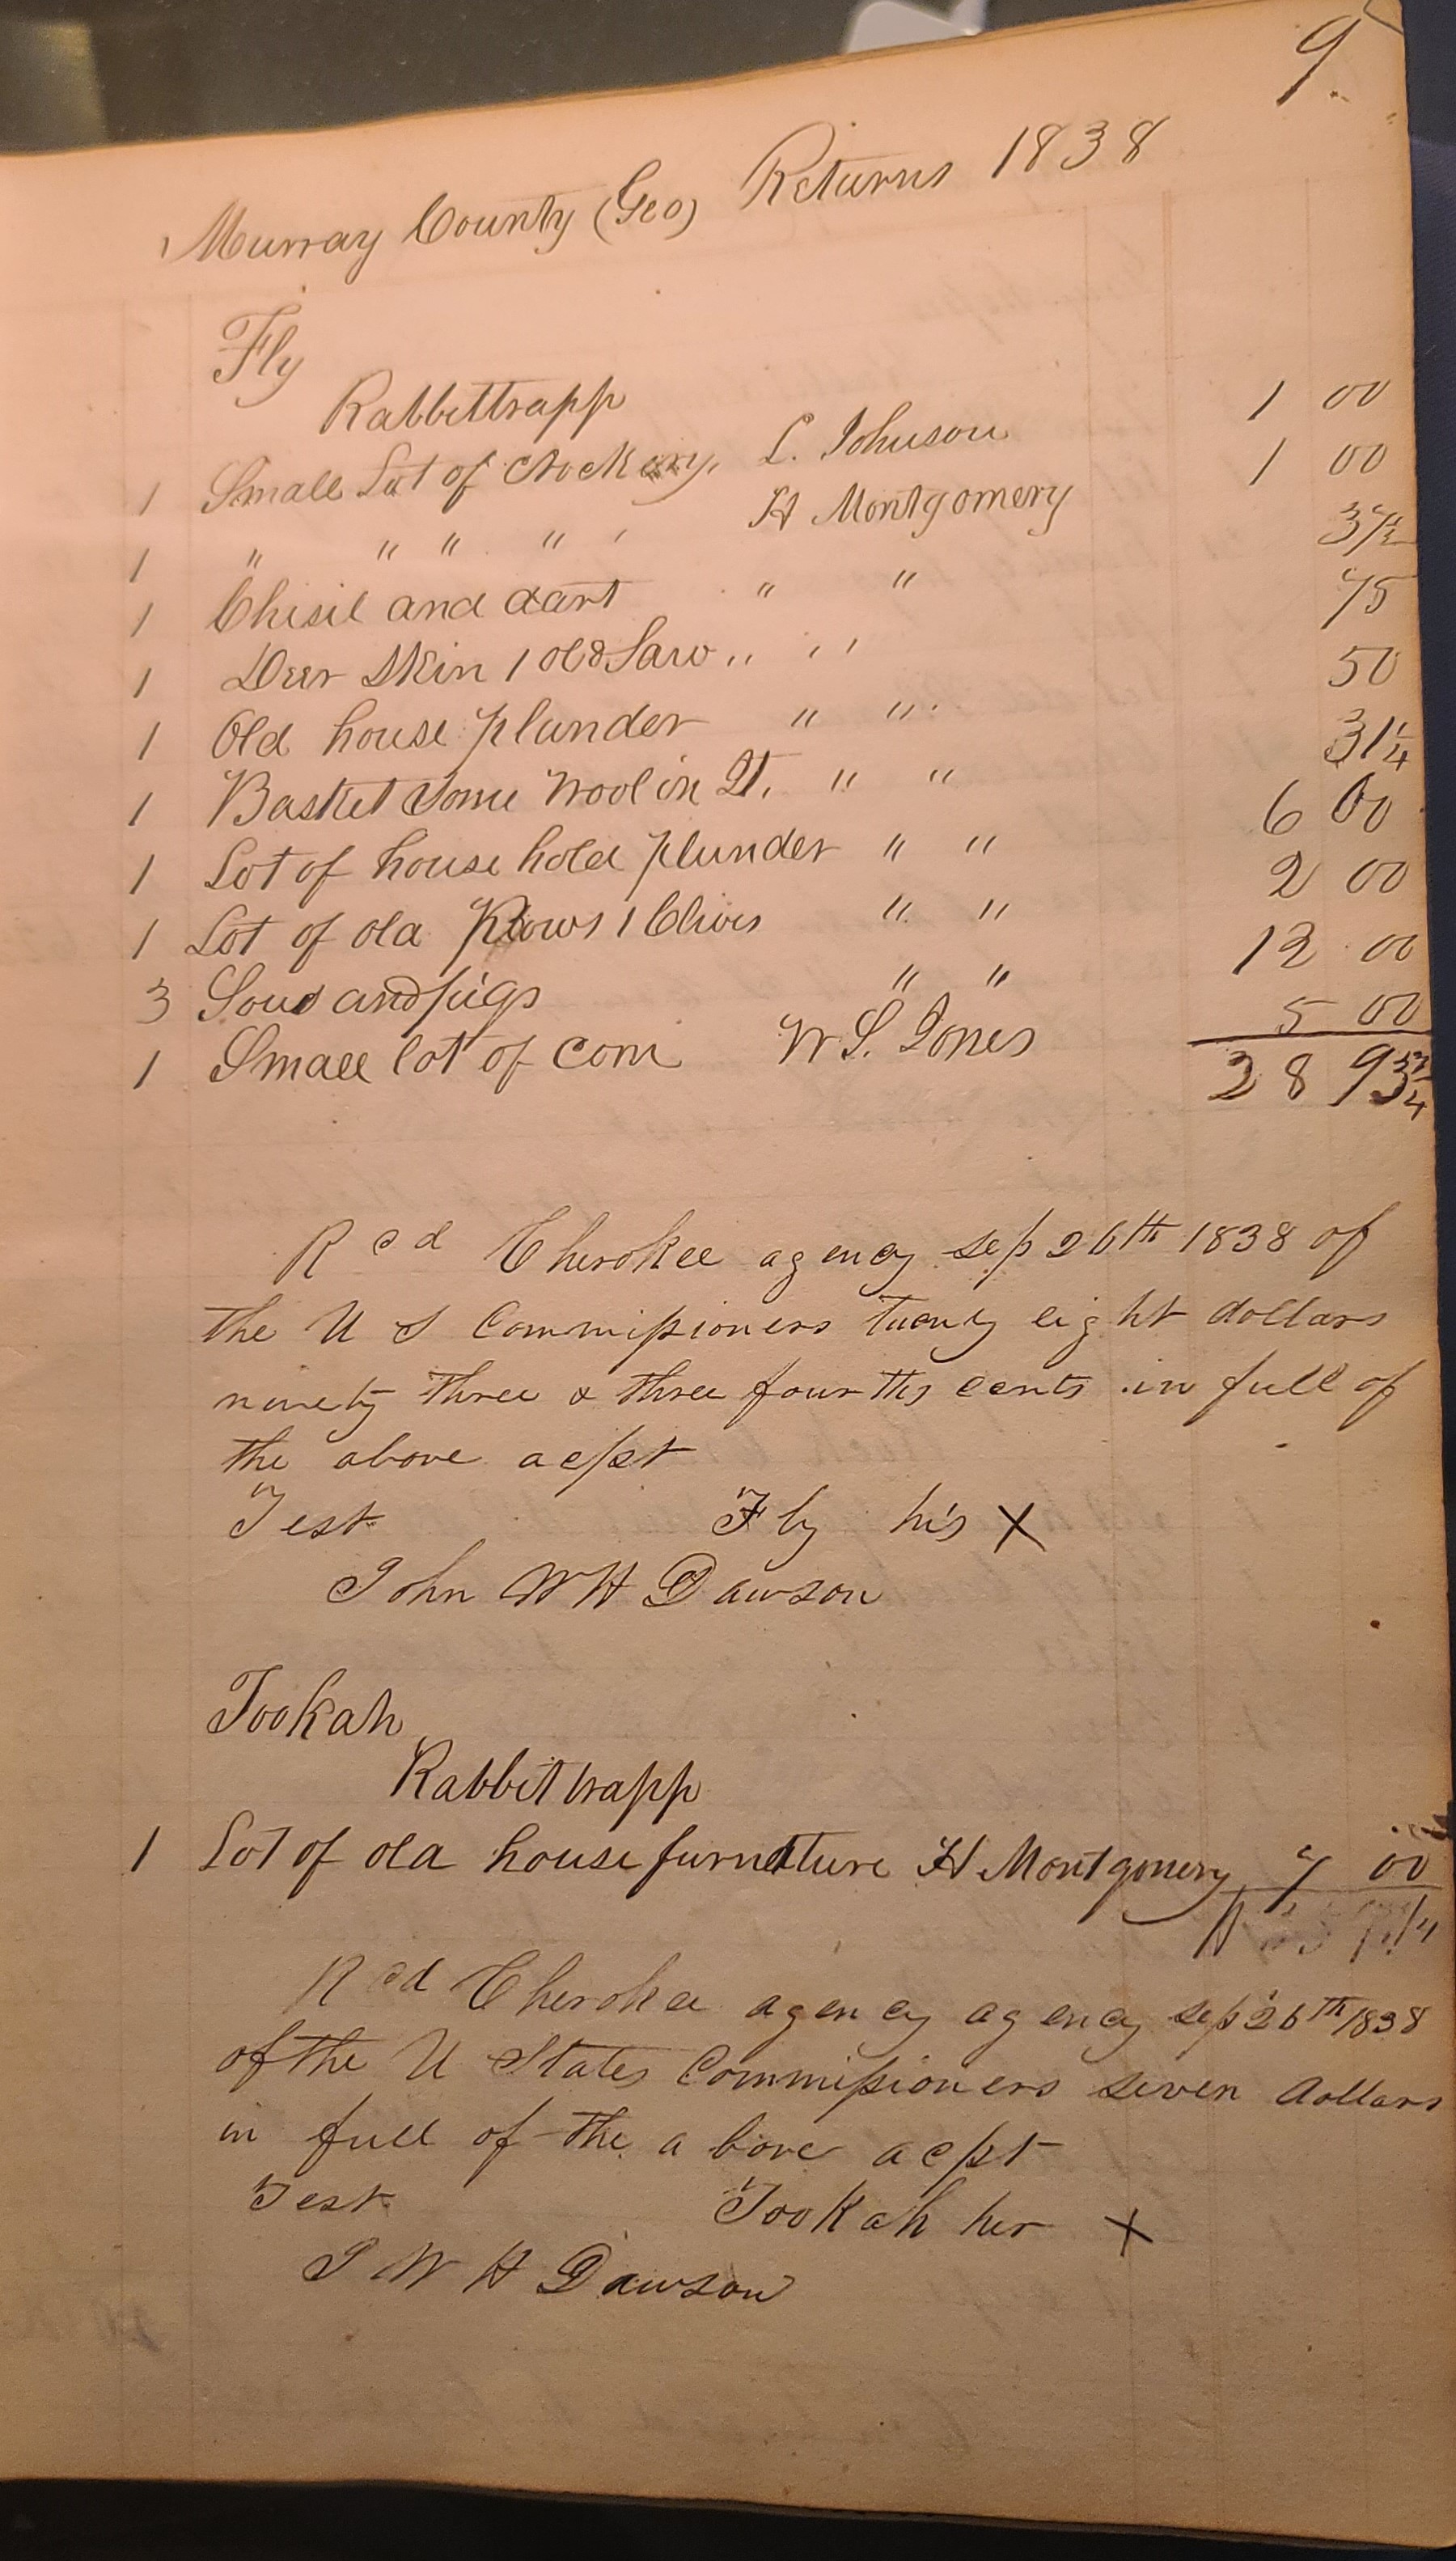 9.
Murray County (Geo) Returns 1838
Fly
Rabbittrapp
1 Small Lot of Crockery, L. Johnson 1 00
1 " " " " ' H Montgomery 1 00
1 Chisil and dart " " 37½
1 Deer Skin 1 old Saw " " 75
1 Old house plunder " " 50
1 Basket Some Wool in It, " " 31¼
1 Lot of house hold plunder " " 6 00
1 Lot of old Plows 1 Clivis " " 2 00
3 Sows and pigs " " 12 00
1 Small lot of Corn W S. Jones 5 00
28 93¾
Rcd Cherokee agency sep 26th 1838 of
the U S Commissioners twenty eight dollars
ninety three & three fourths cents in full of
the above acpt
Test Fly his X
John W H Dawson
Tookah
Rabbittrapp
1 Lot of old house furniture H Montgomery 7 00
Rcd Cherokee agency agency sep 26th 1838
of the U States Commissioners seven dollars
in full of the above acpt
Test Tookah her X
J W H Dawson